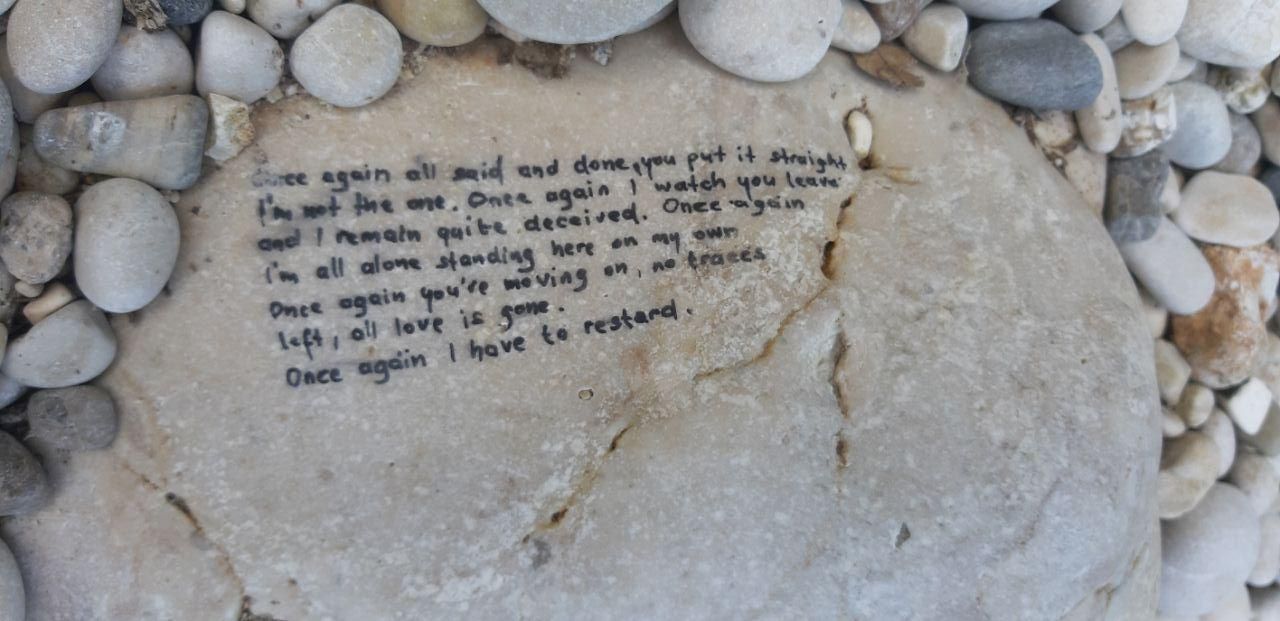 Once again all said and done, you put it straight
I'm not the one. Once again I watch you leave
and I remain quite deceived. Once again
I'm all alone standing here on my own
Once again you're moving on, no traces
left, all love is gone.
Once again I have to restard.